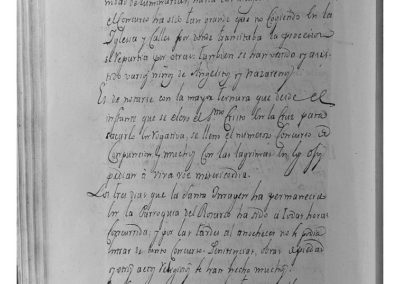 el Concurso ha sido tan grande que no Cogiendo En la
Yglesia y Calles por donde transitaba la procession
se repartia por otras. tambien se han vestido y asis-
tido varios niños de Angelitos y Nazarenos
Es de notarse con la mayor ternura que desde el
instante que se elevó el Smo Cristo En la Cruz para
sacarlo En rogativa, se llenó el numeroso Concurso de
Conpuncion y muchos Con las lagrimas En los ojos
pedian à viva voz misericordia.
Los tres dias que la Santa Ymagen ha permanecido
En la Parroquia del Rosario ha sido a todas horas
Concurrida, y por las tardes al anochecer no se podia
entrar de tanto Concurso. Penitencias, obras de piedad
y otros actos religiosos se han hecho muchos